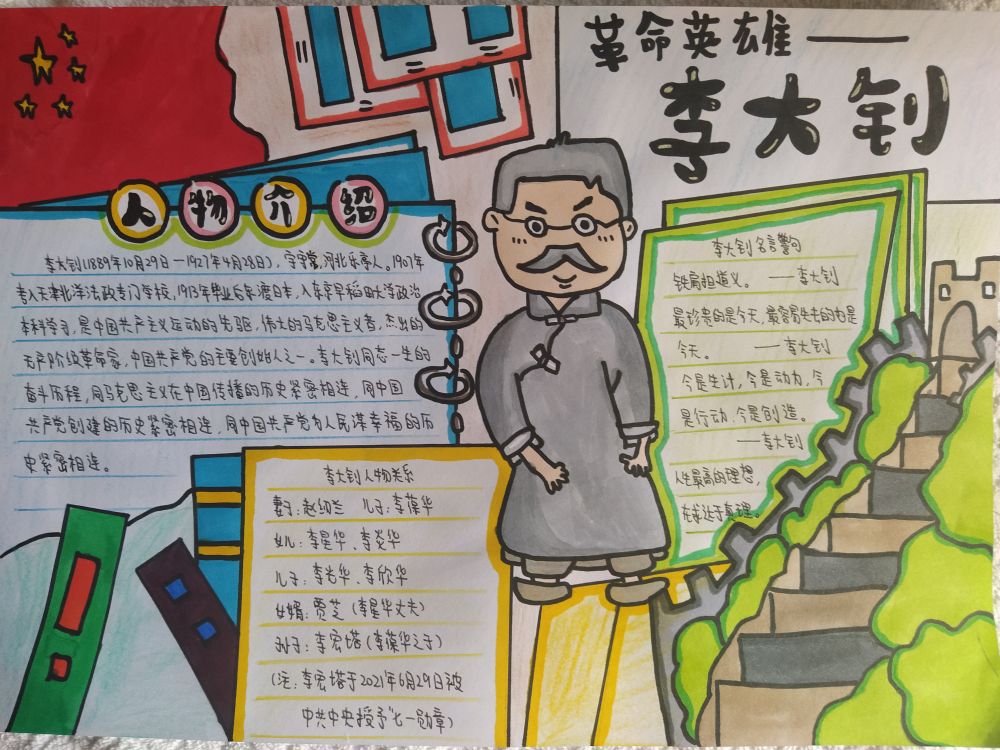 革命英雄——
李大钊
人物介绍
李大钊(1889年10月29日—1927年4月28日),字守常,河北乐亭人。1907年
考入天津北洋法政专门学校,1913年毕业后东渡日本,入东京早稻田大学政治
本科学习,是中国共产主义运动的先驱,伟大的马克思主义者,杰出的
无产阶级革命家,中国共产党的主要创始人之一。李大钊同志一生的
奋斗历程,同马克思主义在中国传播的历史紧密相连,同中国
共产党创建的历史紧密相连,同中国共产党为人民谋幸福的历
史紧密相连。
李大钊人物关系
妻子:赵纫兰 儿子:李葆华
女儿:李星华、李炎华
儿子:李光华、李欣华
女婿:贾芝(李星华丈夫)
孙子:李宏塔(李葆华之子)
(注:李宏塔于2021年6月29日被
中共中央授予"七一勋章)
李大钊名言警句
铁肩担道义。 ——李大钊
最珍贵的是今天,最容易失去的也是
今天。 ——李大钊
今是生计,今是动力,今
是行动,今是创造。
——李大钊
人生最高的理想,
在求达于真理。